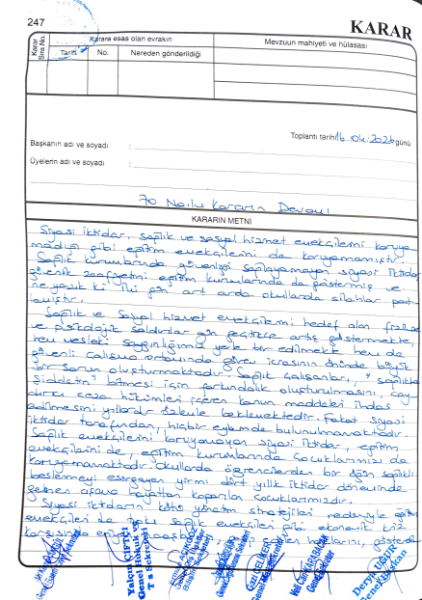 247
KARAR
Karar Sıra No.
Karara esas olan evrakın
Mevzuun mahiyeti ve hülasası
Tarih
No.
Nereden gönderildiği
Toplantı tarihi 16.04.2026 günü
Başkanın adı ve soyadı :
Üyelerin adı ve soyadı :
70 Nolu Kararın Devamı
KARARIN METNİ
Siyasi iktidar, sağlık ve sosyal hizmet emekçilerini koruya
madığı gibi eğitim emekçilerini de koruyamamıştır.
Sağlık kurumlarında güvenliği sağlayamayan siyasi iktidar
güvenlik zaafiyetini eğitim kurumlarında da göstermiş ve
ne yazık ki iki gün art arda okullarda silahlar pat
lamıştır.
Sağlık ve Sosyal hizmet emekçilerini hedef alan fiziksel
ve psikolojik saldırılar gün geçtikçe artış göstermekte,
hem mesleki saygınlığımız yerle bir edilmekte hem de
güvenli çalışma ortamında görev icrasının önünde büyük
bir sorun oluşturmaktadır. Sağlık çalışanları, "sağlıkta
şiddetin" bitmesi için farkındalık oluşturulmasını, cay
dırıcı ceza hükümleri içeren kanun maddeleri ihdas
edilmesini yıllardır özlemle beklemektedir. Fakat siyasi
iktidar tarafından, hiçbir eylemde bulunulmamaktadır.
Sağlık emekçilerini koruyamayan siyasi iktidar, eğitim
emekçilerini de, eğitim kurumlarında çocuklarımızı da
koruyamamaktadır. Okullarda öğrencilerden bir öğün sağlıklı
beslenmeyi esirgeyen yirmi dört yıllık iktidar döneminde
gelinen aşama hayattan koparılan çocuklarımızdır.
Siyasi iktidarın kötü yönetim stratejileri nedeniyle eğitim
emekçileri de sağlık emekçileri gibi ekonomik kriz
karşısında
Derya UĞUR
Genel Başkan